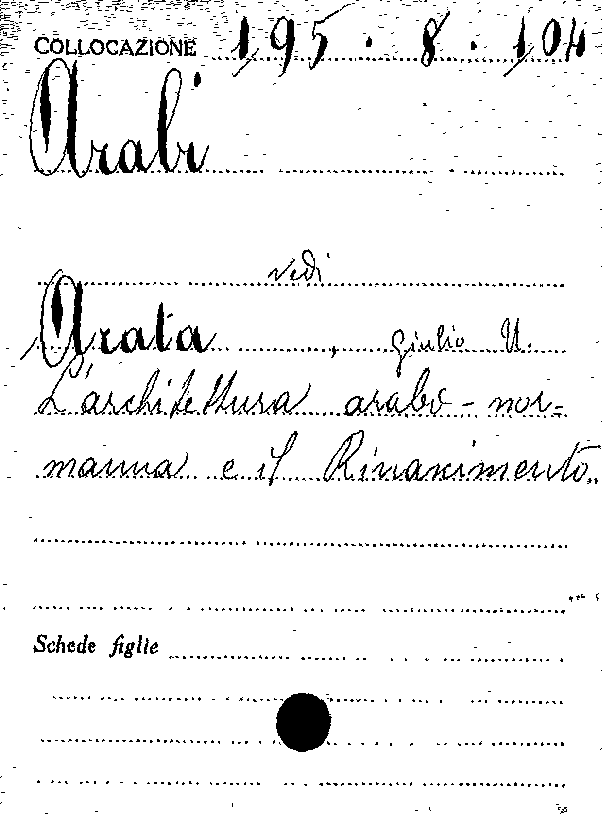 COLLOCAZIONE 195.8.104
Arabi
vedi
Arata, Giulio U.
L'architettura arabo-nor=
manna e il Rinascimento.
Schede figlie